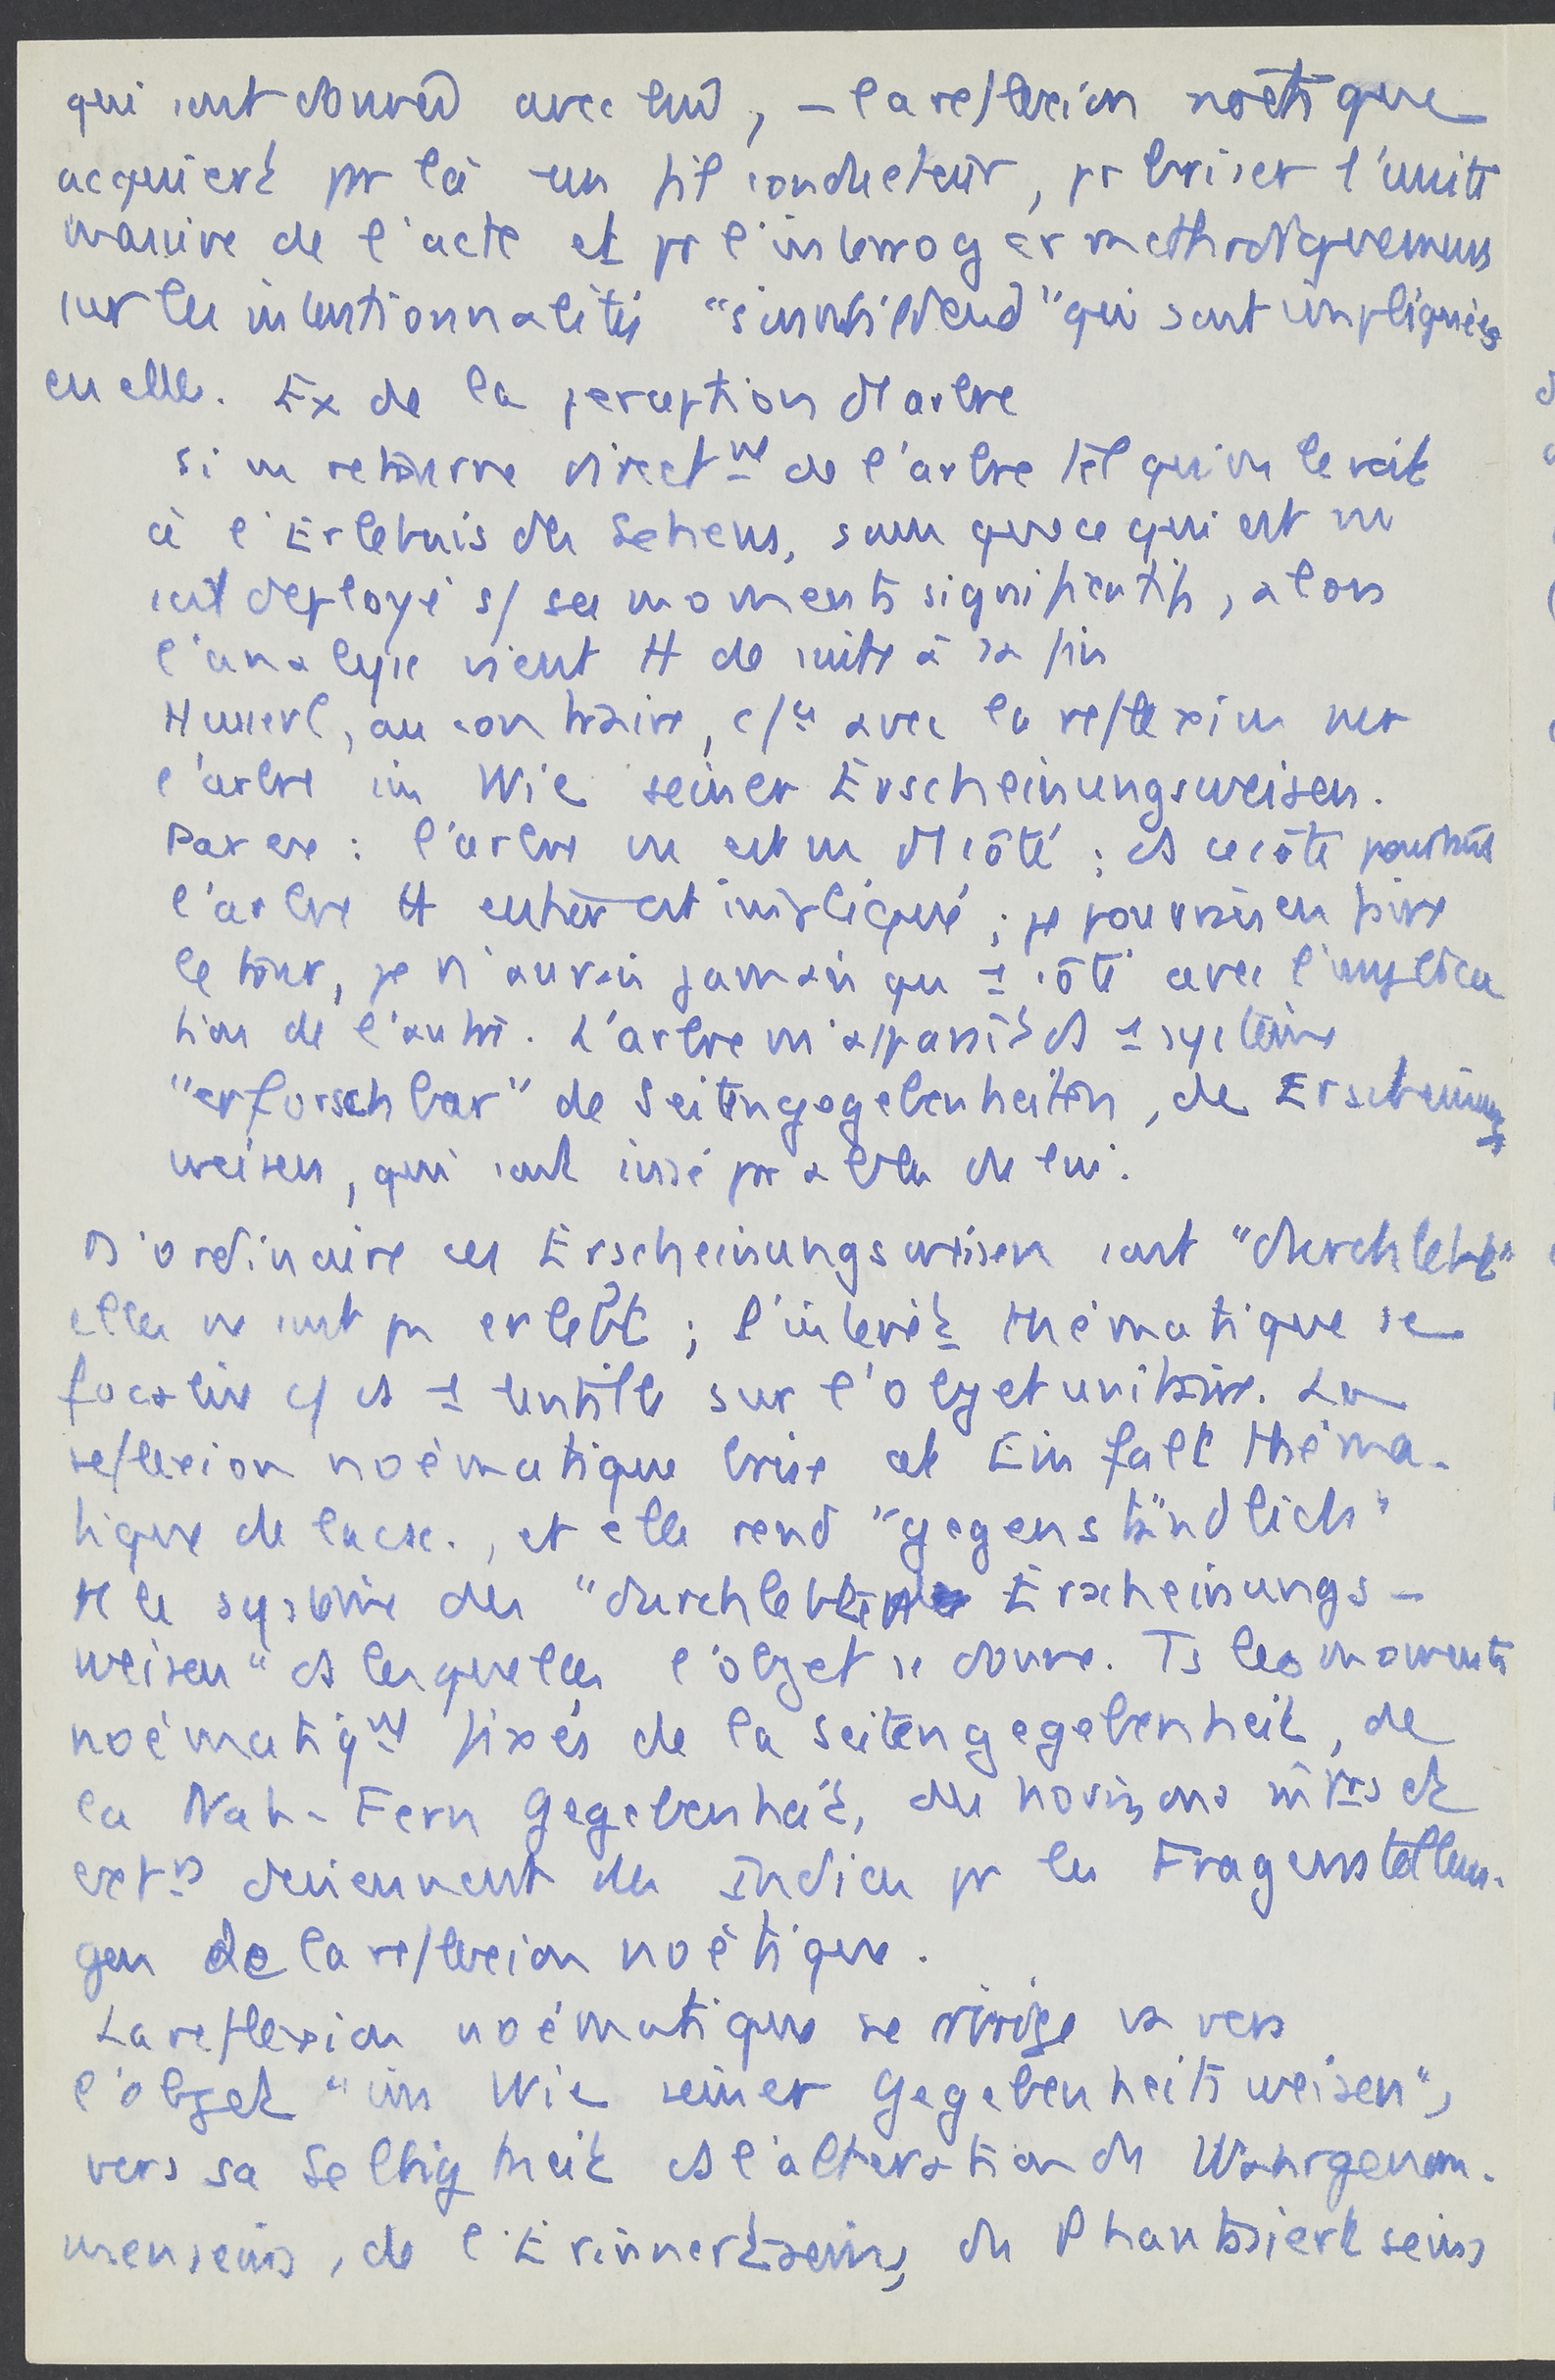 qui sont donnés avec lui, – la reflexion noétique
acquiert par là un fil conducteur, pr briser l'unité
massive de l'acte et pr l'interroger methodiquement
sur les intentionnalités "sinnbildend" qui sont impliquées
en elle. Ex de la perception d'1 arbre
si on retourne direct^mt de l'arbre tel qu'on le voit
à l'Erlebnis du Sehens, sans que ce qui est vu
soit deployé s/ ses moments significatifs, alors
l'analyse vient tt de suite à sa fin
Husserl, au contraire, c/ce avec la reflexion sur
l'arbre im Wie seiner Erscheinungsweisen.
Par ex : l'arbre vu est vu d'1 côté ; ds ce côté pourtant
l'arbre tt entier est impliqué ; je pourrais en faire
le tour, je n'aurais jamais qu'1 côté avec l'implica
tion de l'autre. L'arbre m'apparaît ds 1 système
"erforschbar" de Seitengegebenheiten, de Erscheinungs
weisen, qui sont inséparables de lui.
D'ordinaire ces Erscheinungsweisen sont "durchlebt"
elles ne sont pas erlebt ; l'intérêt thématique se
focalise c/ ds 1 lentille sur l'objet unitaire. La
reflexion noématique brise cet Einfalt théma-
tique de l'acte., et elle rend "gegenständlich"
tt le système des "durchlebten Erscheinungs-
weisen" ds lesquelles l'objet se donne. Ts les moments
noématiq^mt fixés de la Seitengegebenheit, de
la Nah-Fern Gegebenheit, des horizons int^rs et
ext^rs deviennent des Indices pr les Fragenstellun-
gen de la reflexion noétique.
La reflexion noématique se dirige vers
l'objet "im Wie seiner Gegebenheitsweisen",
vers sa Selbigkeit ds l'altération du Wahrgenom-
menseins, de l'Erinnertseins, du Phantasiertseins